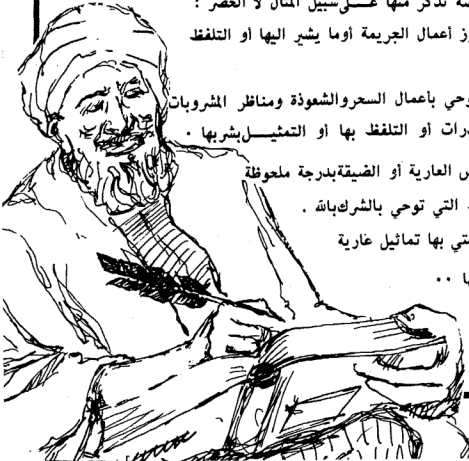 نذكر منها عــــلى سبيل المثال لا الحصر :
ز أعمال الجريمة أوما يشير اليها أو التلفظ
وحي بأعمال السحر والشعوذة ومناظر المشروبات
رات أو التلفظ بها أو التمثيــــل بشربها .
س العارية أو الضيقة بدرجة ملحوظة
التي توحي بالشرك بالله .
تي بها تماثيل عارية
ها ..